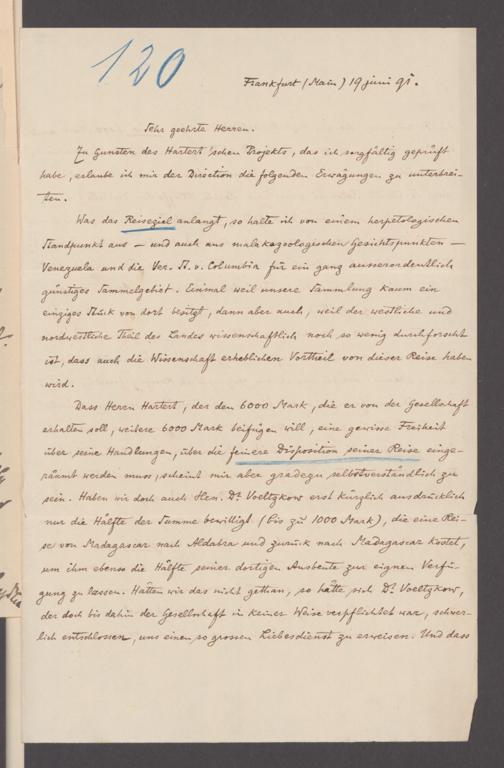 120
Frankfurt (Main) 19 juni 91.
Sehr geehrte Herren.
Zu Gunsten des Hartert'schen Projekts, das ich sorgfältig geprüft
habe, erlaube ich mir der Direction die folgenden Erwägungen zu unterbrei-
ten.
Was das Reiseziel anlangt, so halte ich von einem herpetologischen
Standpunkt aus — und auch aus malakozoologischen Gesichtspunkten —
Venezuela und die Ver. St. v. Columbia für ein ganz ausserordentlich
günstiges Sammelgebiet. Einmal weil unsere Sammlung kaum ein
einziges Stück von dort besitzt, dann aber auch, weil der westliche und
nordwestliche Theil des Landes wissenschaftlich noch so wenig durchforscht
ist, dass auch die Wissenschaft erheblichen Vortheil von dieser Reise haben
wird.
Dass Herrn Hartert, der den 6000 Mark, die er von der Gesellschaft
erhalten soll, weitere 6000 Mark beifügen will, eine gewisse Freiheit
über seine Handlungen, über die feinere Disposition seiner Reise einge-
räumt werden muss, scheint mir aber gradezu selbstverständlich zu
sein. Haben wir doch auch Hrn. Dr. Voeltzkow erst kürzlich ausdrücklich
nur die Hälfte der Summe bewilligt (bis zu 1000 Mark), die eine Rei-
se von Madagascar nach Aldabra und zurück nach Madagascar kostet,
um ihm ebenso die Hälfte seiner dortigen Ausbeute zur eignen Verfü-
gung zu lassen. Hätten wir das nicht gethan, so hätte sich Dr. Voeltzkow,
der doch bis dahin der Gesellschaft in keiner Weise verpflichtet war, schwer-
lich entschlossen, uns einen so grossen Liebesdienst zu erweisen. Und dass